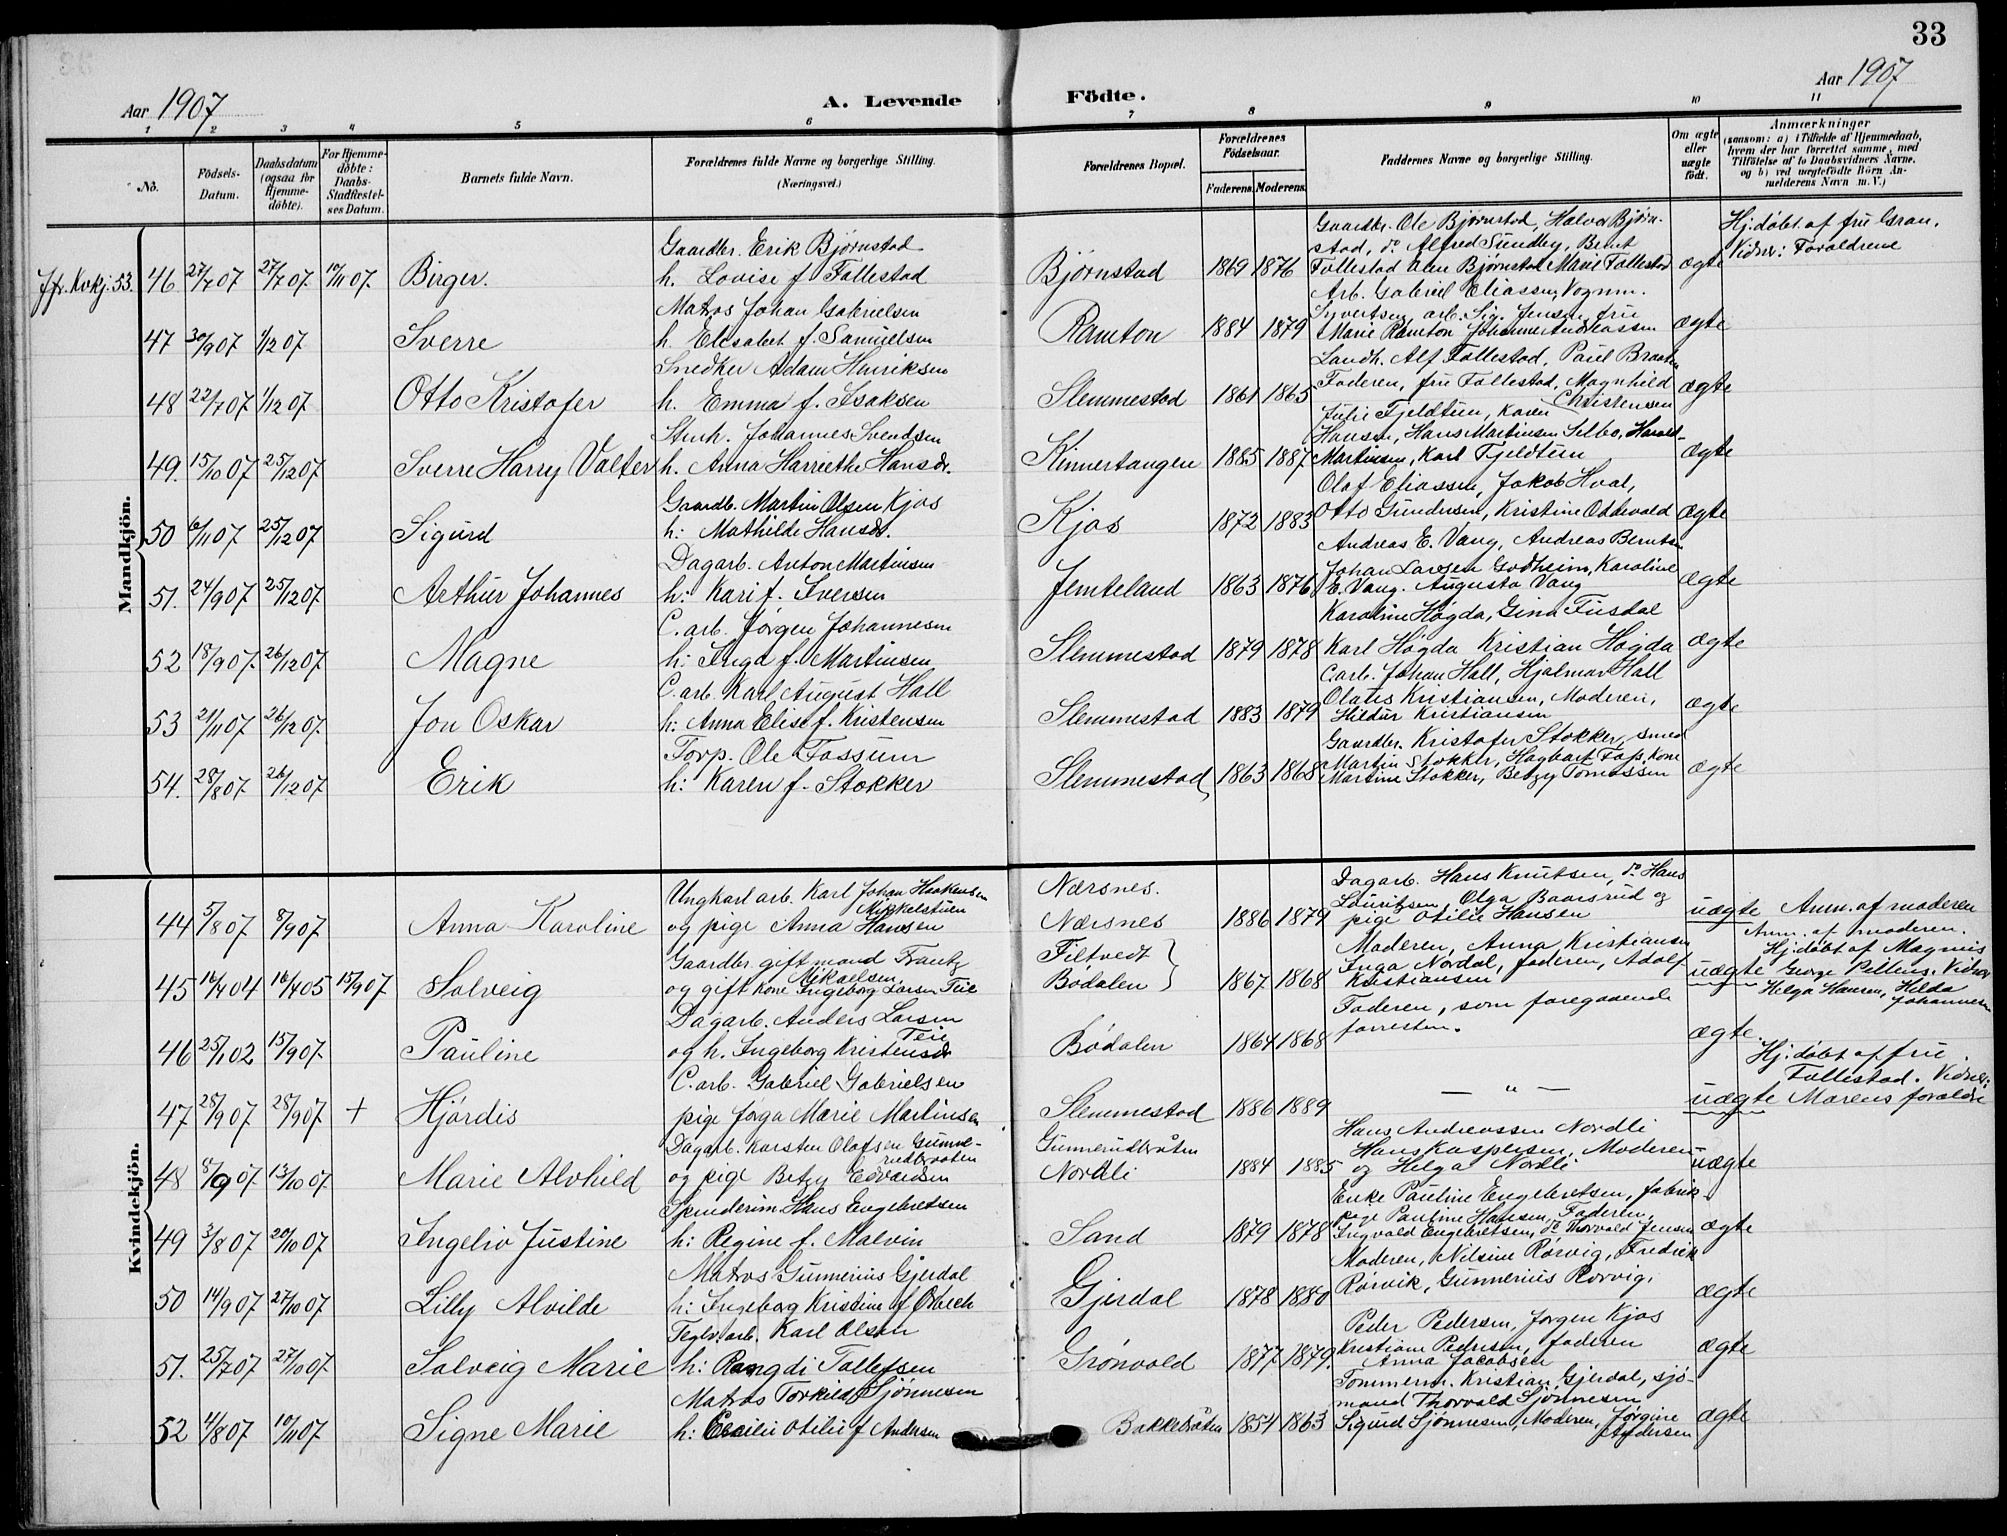 33
Aar 1907
A. Levende Födte.
Aar 1907
1 2 3 4 5 6 7 8 9 10 11
No.
Födsels-Datum.
Daabsdatum (ogsaa for Hjemme-döbte).
For Hjemme-döbte: Daabs-Stadfæstel-ses Datum.
Barnets fulde Navn.
Forældrenes fulde Navne og borgerlige Stilling. (Næringsvei.)
Forældrenes Bopæl.
Forældrenes Födselsaar.
Faderens. Moderens.
Faddernes Navne og borgerlige Stilling.
Om ægte eller uægte födt.
Anmærkninger
(saasom: a) i Tilfælde af Hjemmedaab,
hvem der har forrettet samme, med
Tilföielse af to Daabsvidners Navne.
og b) ved uægtefödte Börn An-
melderens Navn m. V.)
Mandkjön.
Jfr. Kvkj. 53. 46 27/7 07 27/7 07 10/11 07. Birger.
Gaardbr. Erik Bjørnstad
h. Lovise f Follestad
Bjørnstad 1869 1876
Gaardbr. Ole Bjørnstad, Halvor Bjørn-
stad, do Alfred Sundby, Bernt
Follestad Oline Bjørnstad Marie Follestad
ægte
Hj.døbt af fru Gran.
Vidner: Forældrene
47 30/9 07 1/12 07 Sverre
Matros Johan Gabrielsen
h. Elisabet f. Samuelsen
Ramton 1884 1879
Arb. Gabriel Eliassen, Vognm.
Syvertsen, arb. Sig. Jensen, fru
Marie Ramton Johanne Andreassen
ægte
48 22/7 07 1/12 07 Otto Kristofer
Snedker Adam Henriksen
h. Emma f. Isaksen
Slemmestad 1861 1865
Landh. Alf Follestad, Paul Braaten
Faderen, fru Follestad, Magnhild
Christensen
ægte
49. 15/10 07 25/12 07 Sverre Harry Valter
Stenh. Johannes Svendsen
h. Anna Harriethe Hansdr.
Kinnertangen 1885 1887
Julie Fjeldtun, Karen
Hansen, Hans Martinsen Selbo, Harald
Martinsen, Karl Fjeldtun
ægte
50 6/11 07 25/12 07 Sigurd
Gaardb. Martin Olsen Kjos
h: Mathilde Hansdr.
Kjos 1872 1883
Olaf Eliassen, Jakob Hval,
Otto Gundersen, Kristine Oddevald
ægte
51. 24/9 07 25/12 07 Arthur Johannes
Dagarb. Anton Martinsen
h: Kari f. Iversen
Jemteland 1863 1876
Andreas E. Vang, Andreas Berntsen
Johan Larsen Godheim, Karoline
E. Vang. Augusta Vang
ægte
52 18/9 07. 26/12 07. Magne
C. arb. Jørgen Johannesen
h: Inga f. Martinsen
Slemmestad 1879 1878
Karoline Høgda, Gina Fusdal
Karl Høgda Kristian Høgda
ægte
53 21/11 07 26/12 07. Jon Oskar
C. arb. Karl August Hall
h: Anna Elise f. Kristensen
Slemmestad 1883 1879
C.arb. Johan Hall, Hjalmar Hall
Olaus Kristiansen, Moderen,
Hildur Kristiansen
ægte
54. 28/8 07 26/12 07. Erik
Torp. Ole Fossum
h: Karen f. Stokker
Slemmestad 1863 1868
Gaardbr. Kristofer Stokker, smed
Martin Stokker, Hagbart Foss, Kone
Martine Stokker, Betzy Tomassen
ægte
Kvindekjön.
44 5/8 07 8/9 07 Anna Karoline
Ungkarl arb. Karl Johan Haakensen
Mikkelstuen
og pige Anna Hansen
Nærsnes.
Nærsnes 1886 1879
Dagarb. Hans Knutsen, do Hans
Lauritsen Olga Baarsrud og
pige Otilie Hansen
uægte Anm. af moderen
45 16/4 04 16/4 05 15/9 07 Solveig
Gaardbr gift mand Frantz
Mikaelsen
og gift kone Ingeborg Larsen Teie
Filtvedt
Bødalen 1867 1868
Moderen, Anna Kristiansen
Inga Nordal, faderen, Adolf
Kristiansen
uægte
Anm. af moderen.
Hj.døbt af Magnus
George Pettens. Vidner
Helga Hansen, Hilda
Johannesen
46 25/1 02 15/9 07. Pauline
Dagarb. Anders Larsen
Teie
og h. Ingeborg Kristensdr
Bødalen 1864 1868
Faderen, som foregaaende
forresten.
ægte
47 28/9 07 28/9 07 + Hjørdis
C. arb. Gabriel Gabrielsen
pige Jørga Marie Martinsen
Slemmestad 1886 1889
— " —
uægte
Hj. døbt af fru
Follestad. Vidner:
Morens forældre
48 8/9 07 13/10 07. Marie Alvhild
Dagarb. Karsten Olafsen Gunne-
rudbraaten
og pige Betzy Edvardsen
Gunnerudbråten
Nordli 1884 1885
Hans Andreassen Nordli
Hans Kaspersen, Moderen
og Helga Nordli
uægte
49 3/8 07 20/10 07 Ingeliv Justine
Spenderim Hans Engebretsen
h: Regine f. Malvin
Sand 1879 1878
Enke Pauline Engebretsen, fabrik-
pige Pauline Hansen, Faderen,
Ingvald Engebretsen, do Thorvald Jensen
ægte
50 14/9 07 27/10 07 Lilly Alvilde
Matros Gunnerius Gjerdal
h: Ingeborg Kristine f Osbech
Gjerdal 1878 1880
Moderen, Nilsine Rørvig, Fredrik
Rørvik, Gunnerius Rørvig,
ægte
51. 25/7 07 27/10 07. Solveig Marie
Teglv. arb. Karl Olsen
h: Rangdi Tollefsen
Grønvold 1877 1879.
Peder Pedersen, Jørgen Kjos
Kristiane Pedersen, faderen
Anna Jacobsen
ægte
52 4/8 07 10/11 07 Signe Marie
Matros Torkild Sjønnesen
h: Cecilie Otilie f Andersen
Bakkebråten 1854 1863
Tommerm. Kristian Gjerdal, sjø-
mand Thorvald Sjønnesen
Sigurd Sjønnesen, Moderen, Jørgine
Andersen
ægte